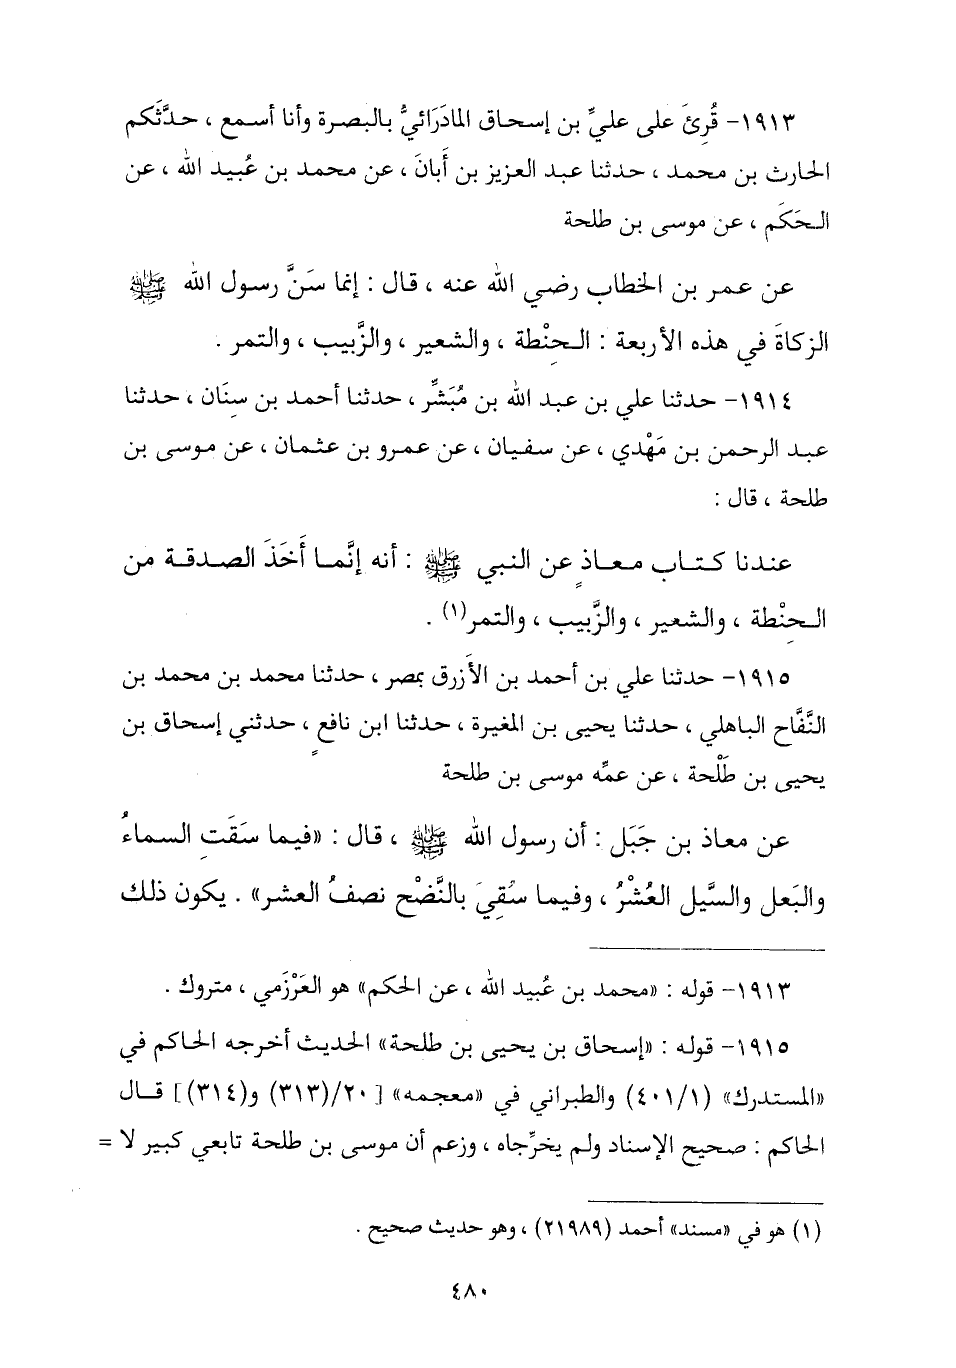 ١٩١٣- قُرِئَ على عليِّ بن إسحاق المادَرَائيُّ بالبصرة وأنا أسمع ، حدَّثَكم
الحارث بن محمد ، حدثنا عبد العزيز بن أَبانَ ، عن محمد بن عُبيد الله ، عن
الحَكَمِ ، عن موسى بن طلحة
عن عمر بن الخطاب رضي الله عنه ، قال : إنما سَنَّ رسول الله ﷺ
الزكاةَ في هذه الأربعة : الحِنْطة ، والشعير ، والزَّبيب ، والتمر .
١٩١٤- حدثنا علي بن عبد الله بن مُبَشِّر ، حدثنا أحمد بن سِنَان ، حدثنا
عبد الرحمن بن مَهْدي ، عن سفيان ، عن عمرو بن عثمان ، عن موسى بن
طلحة ، قال :
عندنا كتاب معاذٍ عن النبي ﷺ : أنه إنَّما أَخَذَ الصدقة من
الحِنْطة ، والشعير ، والزَّبيب ، والتمر(١) .
١٩١٥- حدثنا علي بن أحمد بن الأَزرق بمصر ، حدثنا محمد بن محمد بن
النَّفَّاح الباهلي ، حدثنا يحيى بن المغيرة ، حدثنا ابن نافعٍ ، حدثني إسحاق بن
يحيى بن طَلْحة ، عن عمِّه موسى بن طلحة
عن معاذ بن جَبَل : أن رسول الله ﷺ ، قال : «فيما سَقَتِ السماءُ
والبَعل والسَّيل العُشْرُ ، وفيما سُقِيَ بالنَّضْح نصفُ العشر» . يكون ذلك
١٩١٣- قوله : «محمد بن عُبيد الله ، عن الحكم» هو العَرْزَمي ، متروك .
١٩١٥- قوله : «إسحاق بن يحيى بن طلحة» الحديث أخرجه الحاكم في
«المستدرك» (٤٠١/١) والطبراني في «معجمه» [٢٠/(٣١٣) و(٣١٤)] قال
الحاكم : صحيح الإسناد ولم يخرِّجاه ، وزعم أن موسى بن طلحة تابعي كبير لا =
(١) هو في «مسند» أحمد (٢١٩٨٩) ، وهو حديث صحيح .
٤٨٠